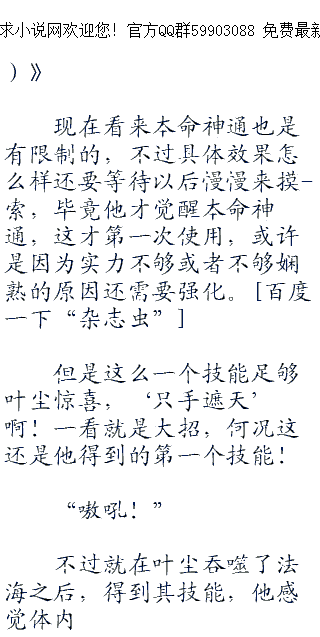 求小说网欢迎您！官方QQ群59903088 免费最新
）》
现在看来本命神通也是
有限制的，不过具体效果怎
么样还要等待以后慢慢来摸-
索，毕竟他才觉醒本命神
通，这才第一次使用，或许
是因为实力不够或者不够娴
熟的原因还需要强化。[百度
一下“杂志虫”]
但是这么一个技能足够
叶尘惊喜，‘只手遮天’
啊！一看就是大招，何况这
还是他得到的第一个技能！
“嗷吼！”
不过就在叶尘吞噬了法
海之后，得到其技能，他感
觉体内